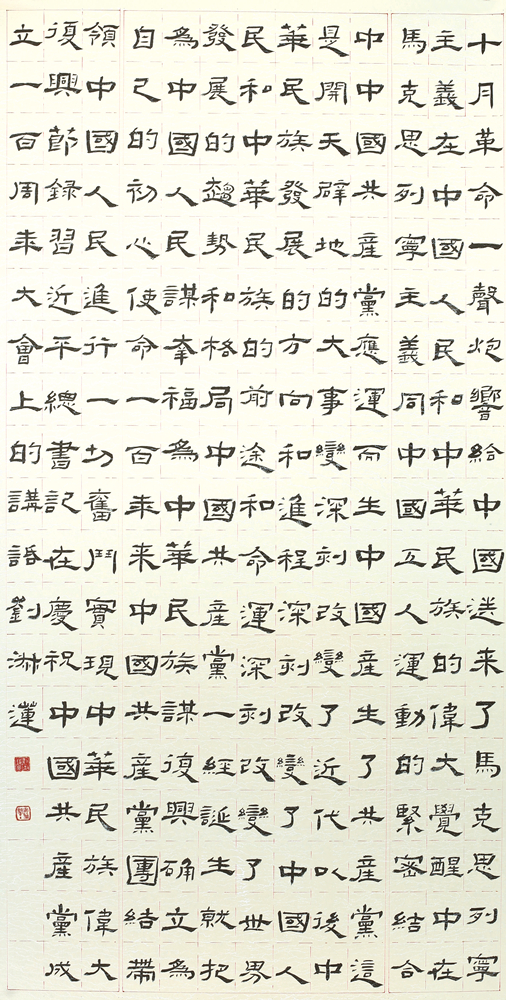 十月革命一聲炮響給中國送来了馬克思列寧
主義在中國人民和中華民族的偉大覺醒中在
馬克思列寧主義同中國工人運動的緊密結合
中中國共産黨應運而生中國産生了共産黨這
是開天辟地的大事變深刻改變了近代以後中
華民族發展的方向和進程深刻改變了中國人
民和中華民族的前途和命運深刻改變了世界
發展的趨勢和格局中國共産黨一經誕生就把
為中國人民謀幸福為中華民族謀復興确立為
自己的初心使命一百年来中國共産黨團結帶
領中國人民進行一切奮鬥實現中華民族偉大
復興節録習近平總書記在慶祝中國共産黨成
立一百周年大會上的講話劉淋蓮